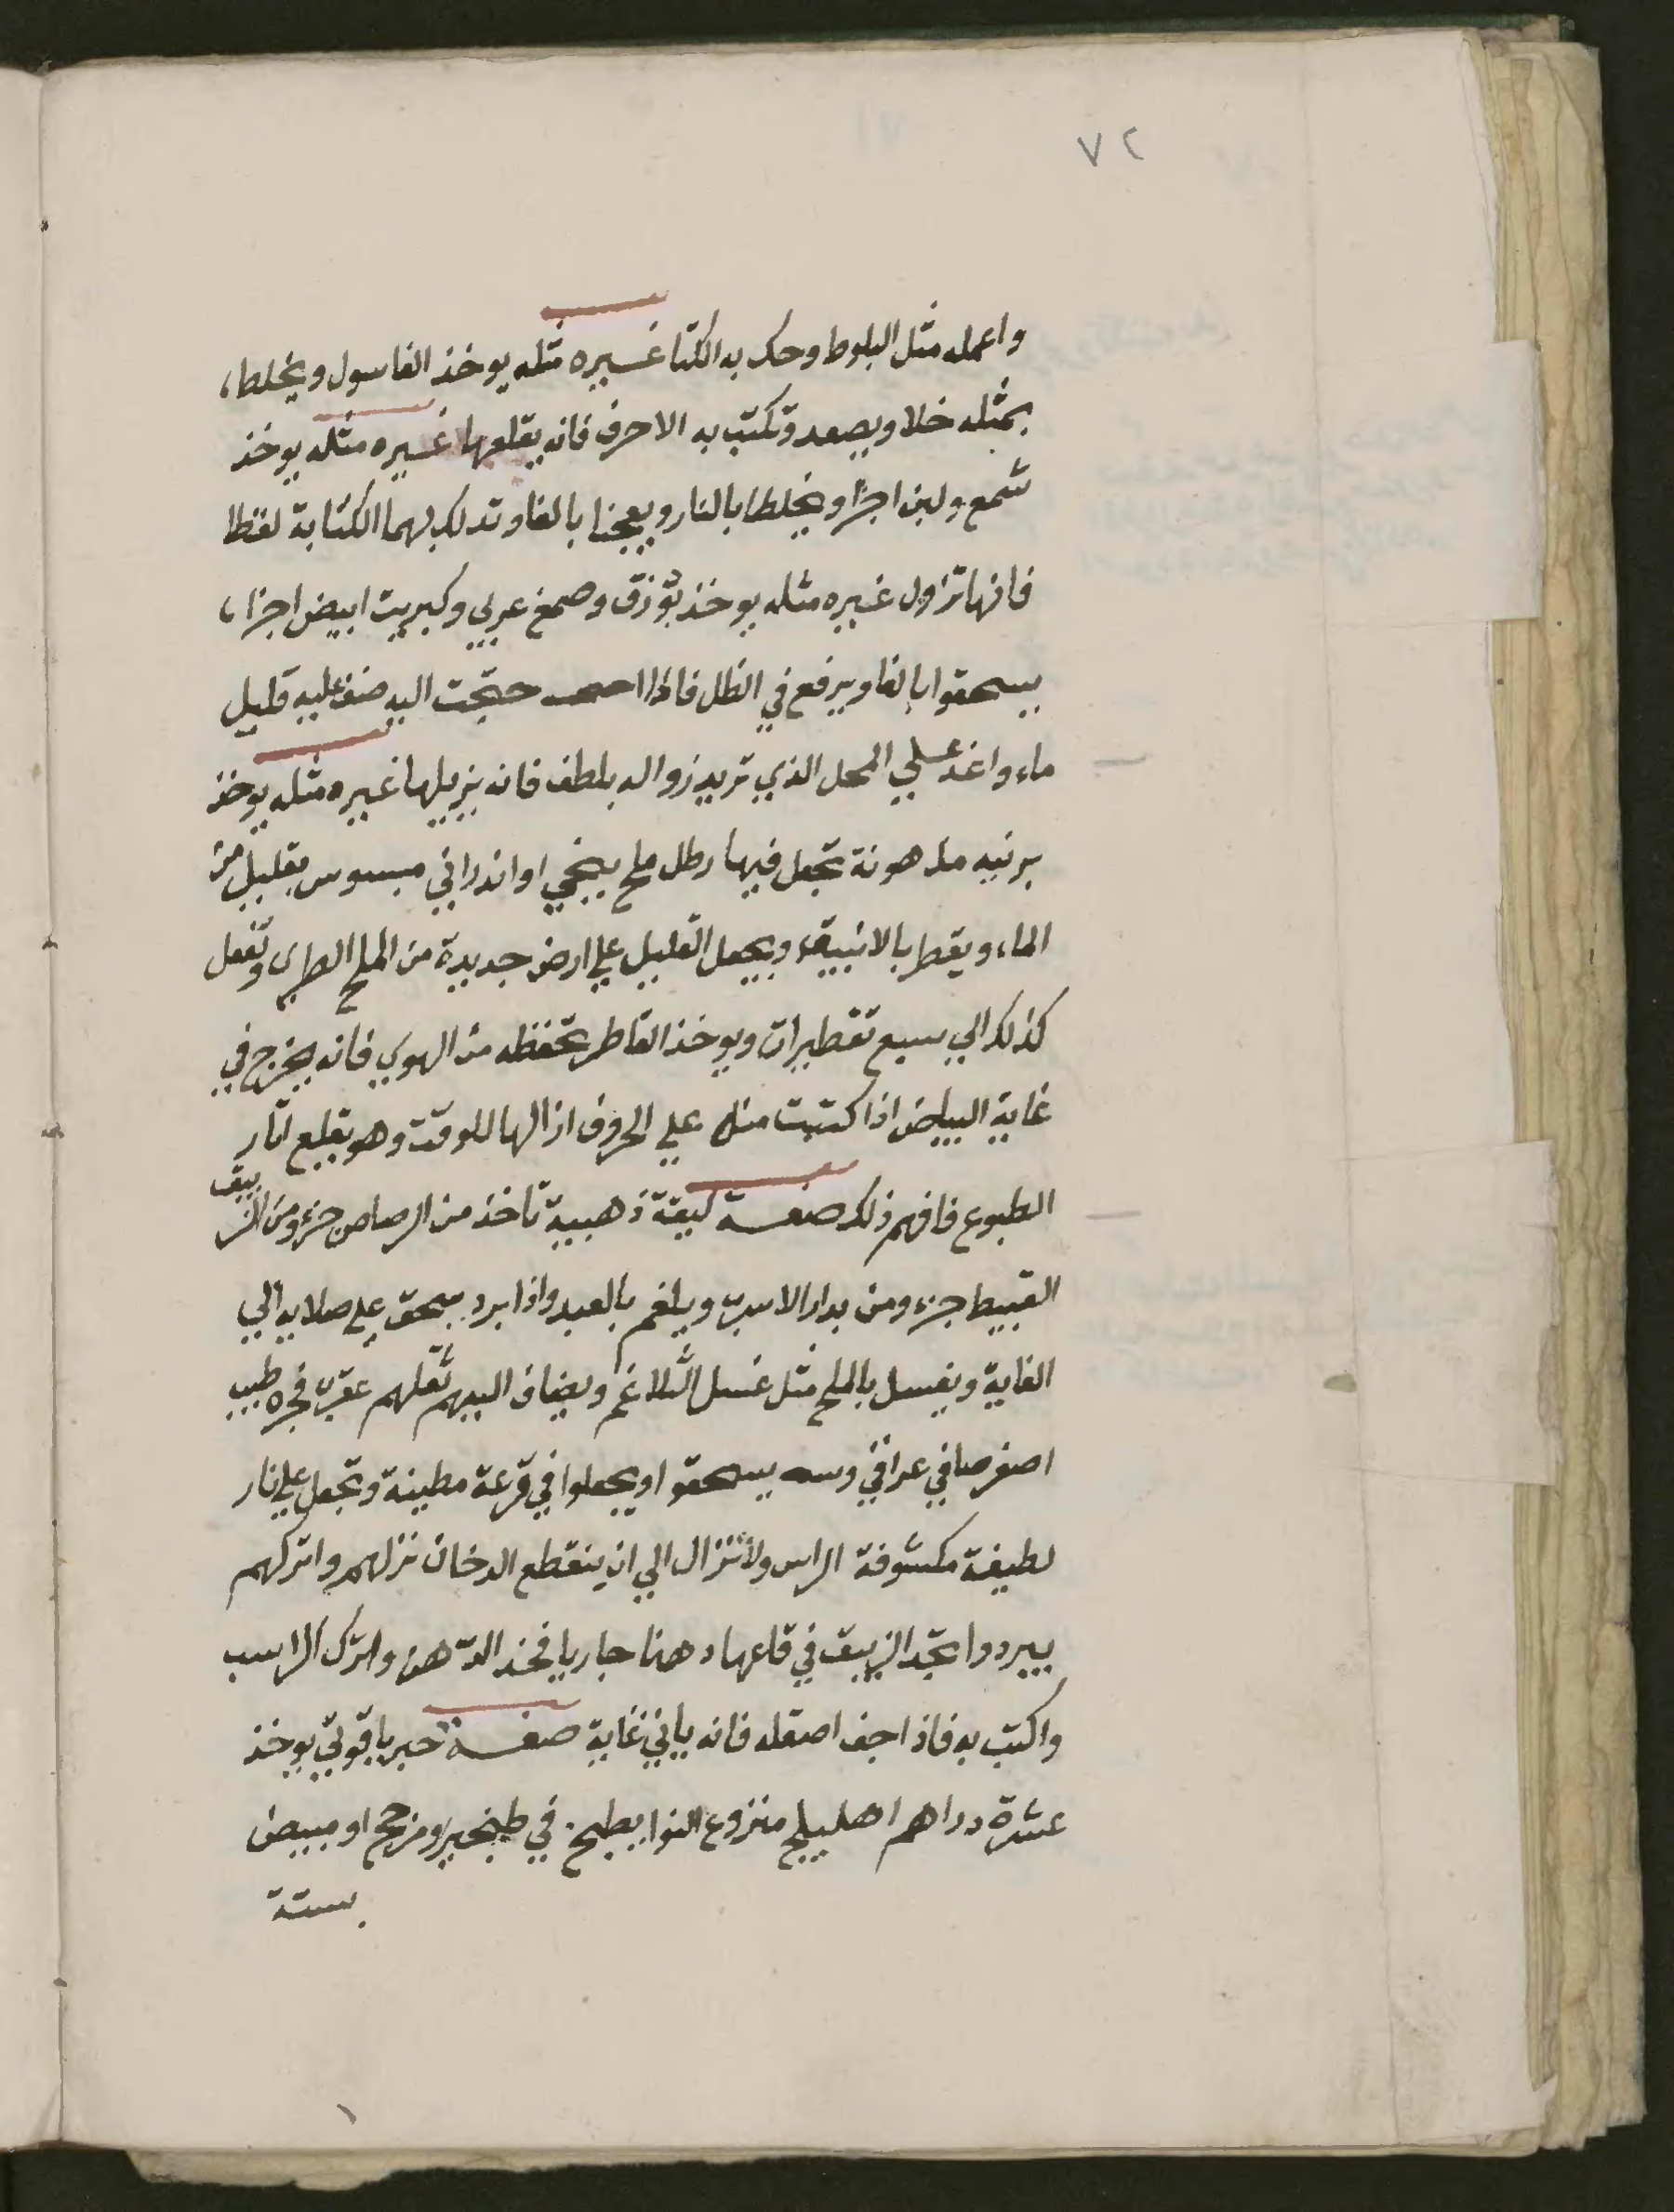 ٧٢
واعمله مثل البلوط وحك به الكتا غيره مثله يوخذ الغاسول ويخلط،
بمثله خلا ويصعد وتكتب به الاحرف فانه يقلعها غيره مثله يوخذ
شمع ولبن اجزا ويخلطا بالنار ويعجنا بالغا وتدلك بهما الكتابة لقطا
فانها تزول غيره مثله يوخذ بورق وصمغ عربي وكبريت ابيض اجزا،
يسحقوا بالغا ويرفع في الظل فاذا حتجت اليه ضف عليه قليل
ماء واغد علي المحل الذي تريد زواله بلطف فانه يزيلها غيره مثله يوخذ
برنيه مدهونة تجعل فيها رطل ملح او اندراني مبسوس بقليل من
الماء ويقطر بالانبيق ويجعل القليل علي ارض جديدة من الملح الطري وتفعل
كذلك الي سبع تقطيرات ويوخذ القاطر تحفظه من الهوي فانه يخرج في
غاية البياض اذا كتبت منه علي الحروف ازالها للوقت وهو يقلع اثار
الطبوع فافهم ذلك صفة ليقة ذهبية تاخذ من الرصاص جزء ومن الزيبق
القبيط جزء ومن بدار الاسرب ويلغم بالعبد واذا برد يسحق علي صلايه الي
الغاية ويغسل بالملح مثل غسل التلاغم ويضاف اليهم ثقلهم طيب
اصفر صافي عراقي يسحقوا ويجعلوا في قرعة مطينة وتجعل علي نار
لطيفة مكشوفة الراس ولا تزال الي ان ينقطع الدخان نزلهم واتركهم
يبردوا تجد الزيبق في قاعها دهنا جاريا فخذ الدهن واترك الراسب
واكتب به فاذا جف اصقله فانه ياتي غاية صفة حبر ياقوتي يوخذ
عشرة دراهم اهليلج منزوع النوا يطبخ في طنجير ومزجج او مبيض
بستة